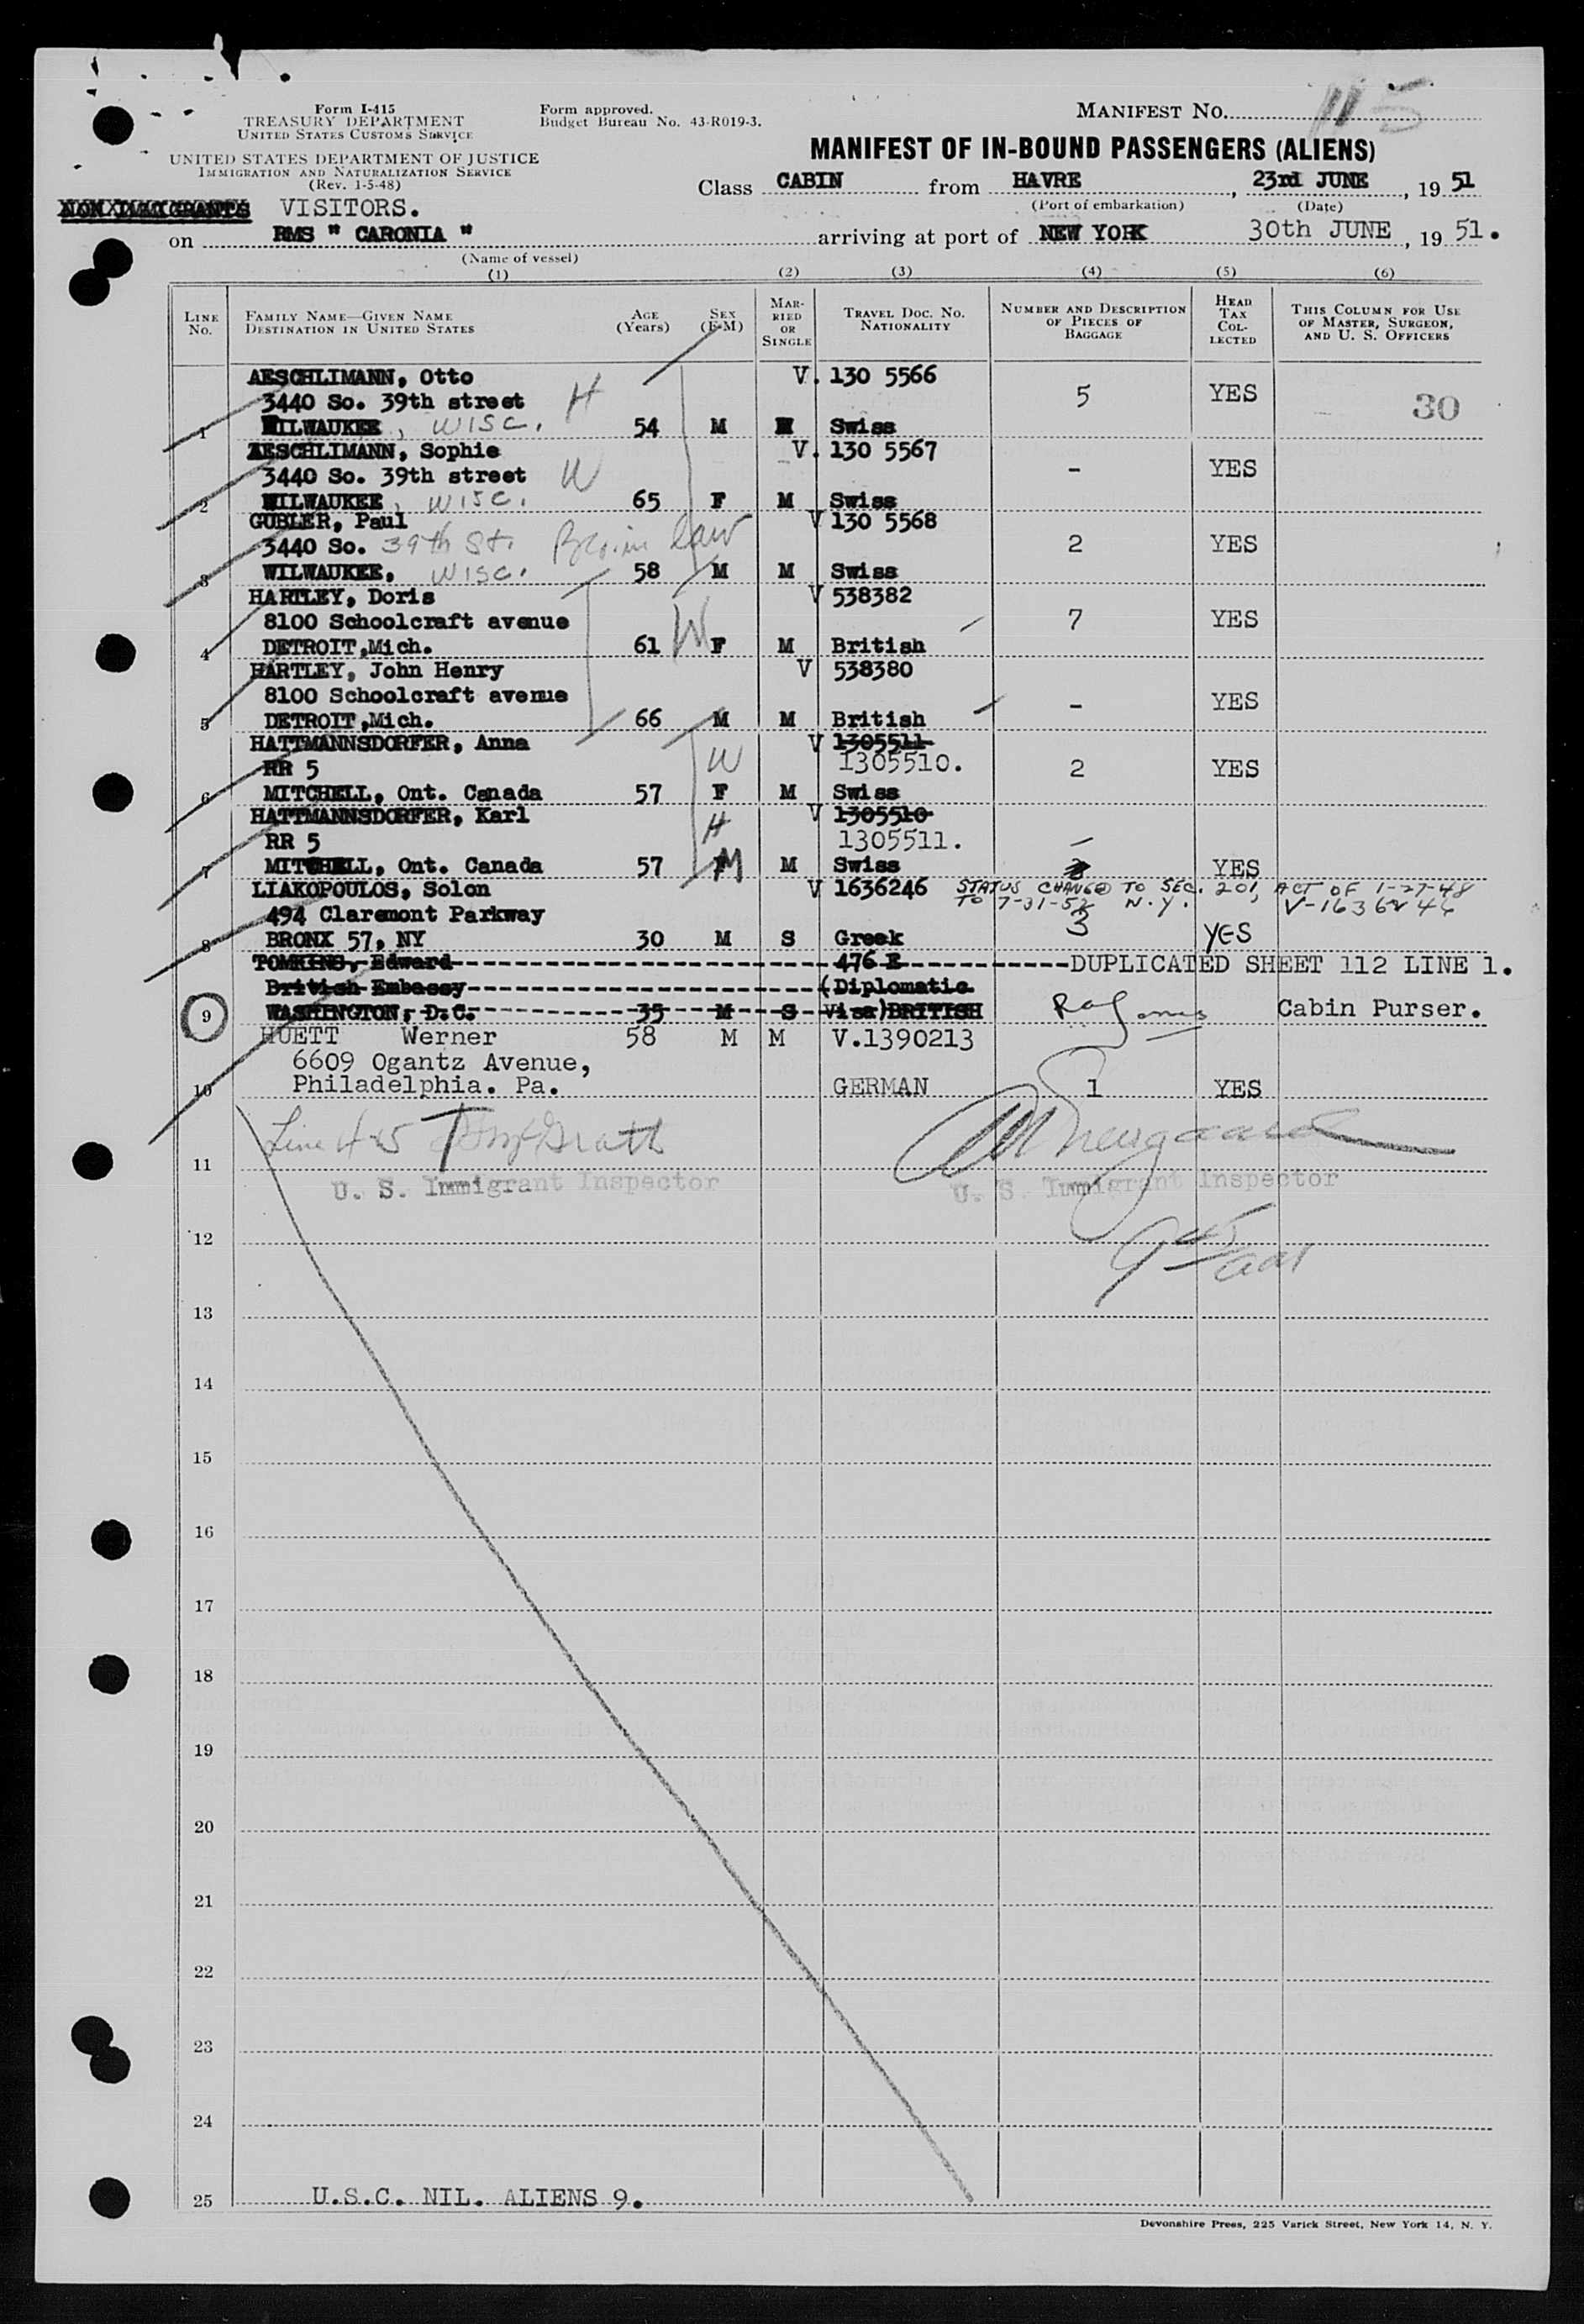 Form I-415
TREASURY DEPARTMENT
UNITED STATES CUSTOMS SERVICE
UNITED STATES DEPARTMENT OF JUSTICE
IMMIGRATION AND NATURALIZATION SERVICE
(Rev. 1-5-48)
Form approved.
Budget Bureau No. 43-R019-3.
MANIFEST NO. 115
MANIFEST OF IN-BOUND PASSENGERS (ALIENS)
Class CABIN from HAVRE, 23rd JUNE, 19 51
(Port of embarkation) (Date)
NON IMMIGRANTS VISITORS.
on RMS " CARONIA " arriving at port of NEW YORK 30th JUNE, 19 51.
(Name of vessel)
(1) (2) (3) (4) (5) (6)
LINE No. FAMILY NAME—GIVEN NAME DESTINATION IN UNITED STATES AGE (Years) SEX (F-M) MARRIED OR SINGLE TRAVEL DOC. NO. NATIONALITY NUMBER AND DESCRIPTION OF PIECES OF BAGGAGE HEAD TAX COLLECTED THIS COLUMN FOR USE OF MASTER, SURGEON, AND U. S. OFFICERS
AESCHLIMANN, Otto V. 130 5566
3440 So. 39th street H 5 YES 30
1 MILWAUKEE, WISC. 54 M M Swiss
AESCHLIMANN, Sophie V. 130 5567
3440 So. 39th street W - YES
2 MILWAUKEE, WISC. 65 F M Swiss
GUBLER, Paul V 130 5568
3440 So. 39th St. Bro. in law 2 YES
3 WILWAUKEE, WISC. 58 M M Swiss
HARTLEY, Doris V 538382
8100 Schoolcraft avenue W 7 YES
4 DETROIT,Mich. 61 F M British
HARTLEY, John Henry V 538380
8100 Schoolcraft avenue - YES
5 DETROIT,Mich. 66 M M British
HATTMANNSDORFER, Anna V 1305511
RR 5 W 1305510. 2 YES
6 MITCHELL, Ont. Canada 57 F M Swiss
HATTMANNSDORFER, Karl V 1305510
RR 5 H 1305511. -
7 MITCHELL, Ont. Canada 57 M M Swiss YES
LIAKOPOULOS, Solon V 1636246 STATUS CHANGED TO SEC. 201, ACT OF 1-27-48
TO 7-31-52 N.Y. V-1636246
494 Claremont Parkway 3
8 BRONX 57, NY 30 M S Greek YES
TOMKINS, Edward 476 E DUPLICATED SHEET 112 LINE 1.
British Embassy (Diplomatic
9 WASHINGTON, D.C. 35 M S Visa)BRITISH Cabin Purser.
HUETT Werner 58 M M V.1390213
6609 Ogantz Avenue,
10 Philadelphia. Pa. GERMAN 1 YES
Line 4-5
11
U. S. Immigrant Inspector U. S. Immigrant Inspector
12
13
14
15
16
17
18
19
20
21
22
23
24
25 U.S.C. NIL. ALIENS 9.
Devonshire Press, 225 Varick Street, New York 14, N. Y.